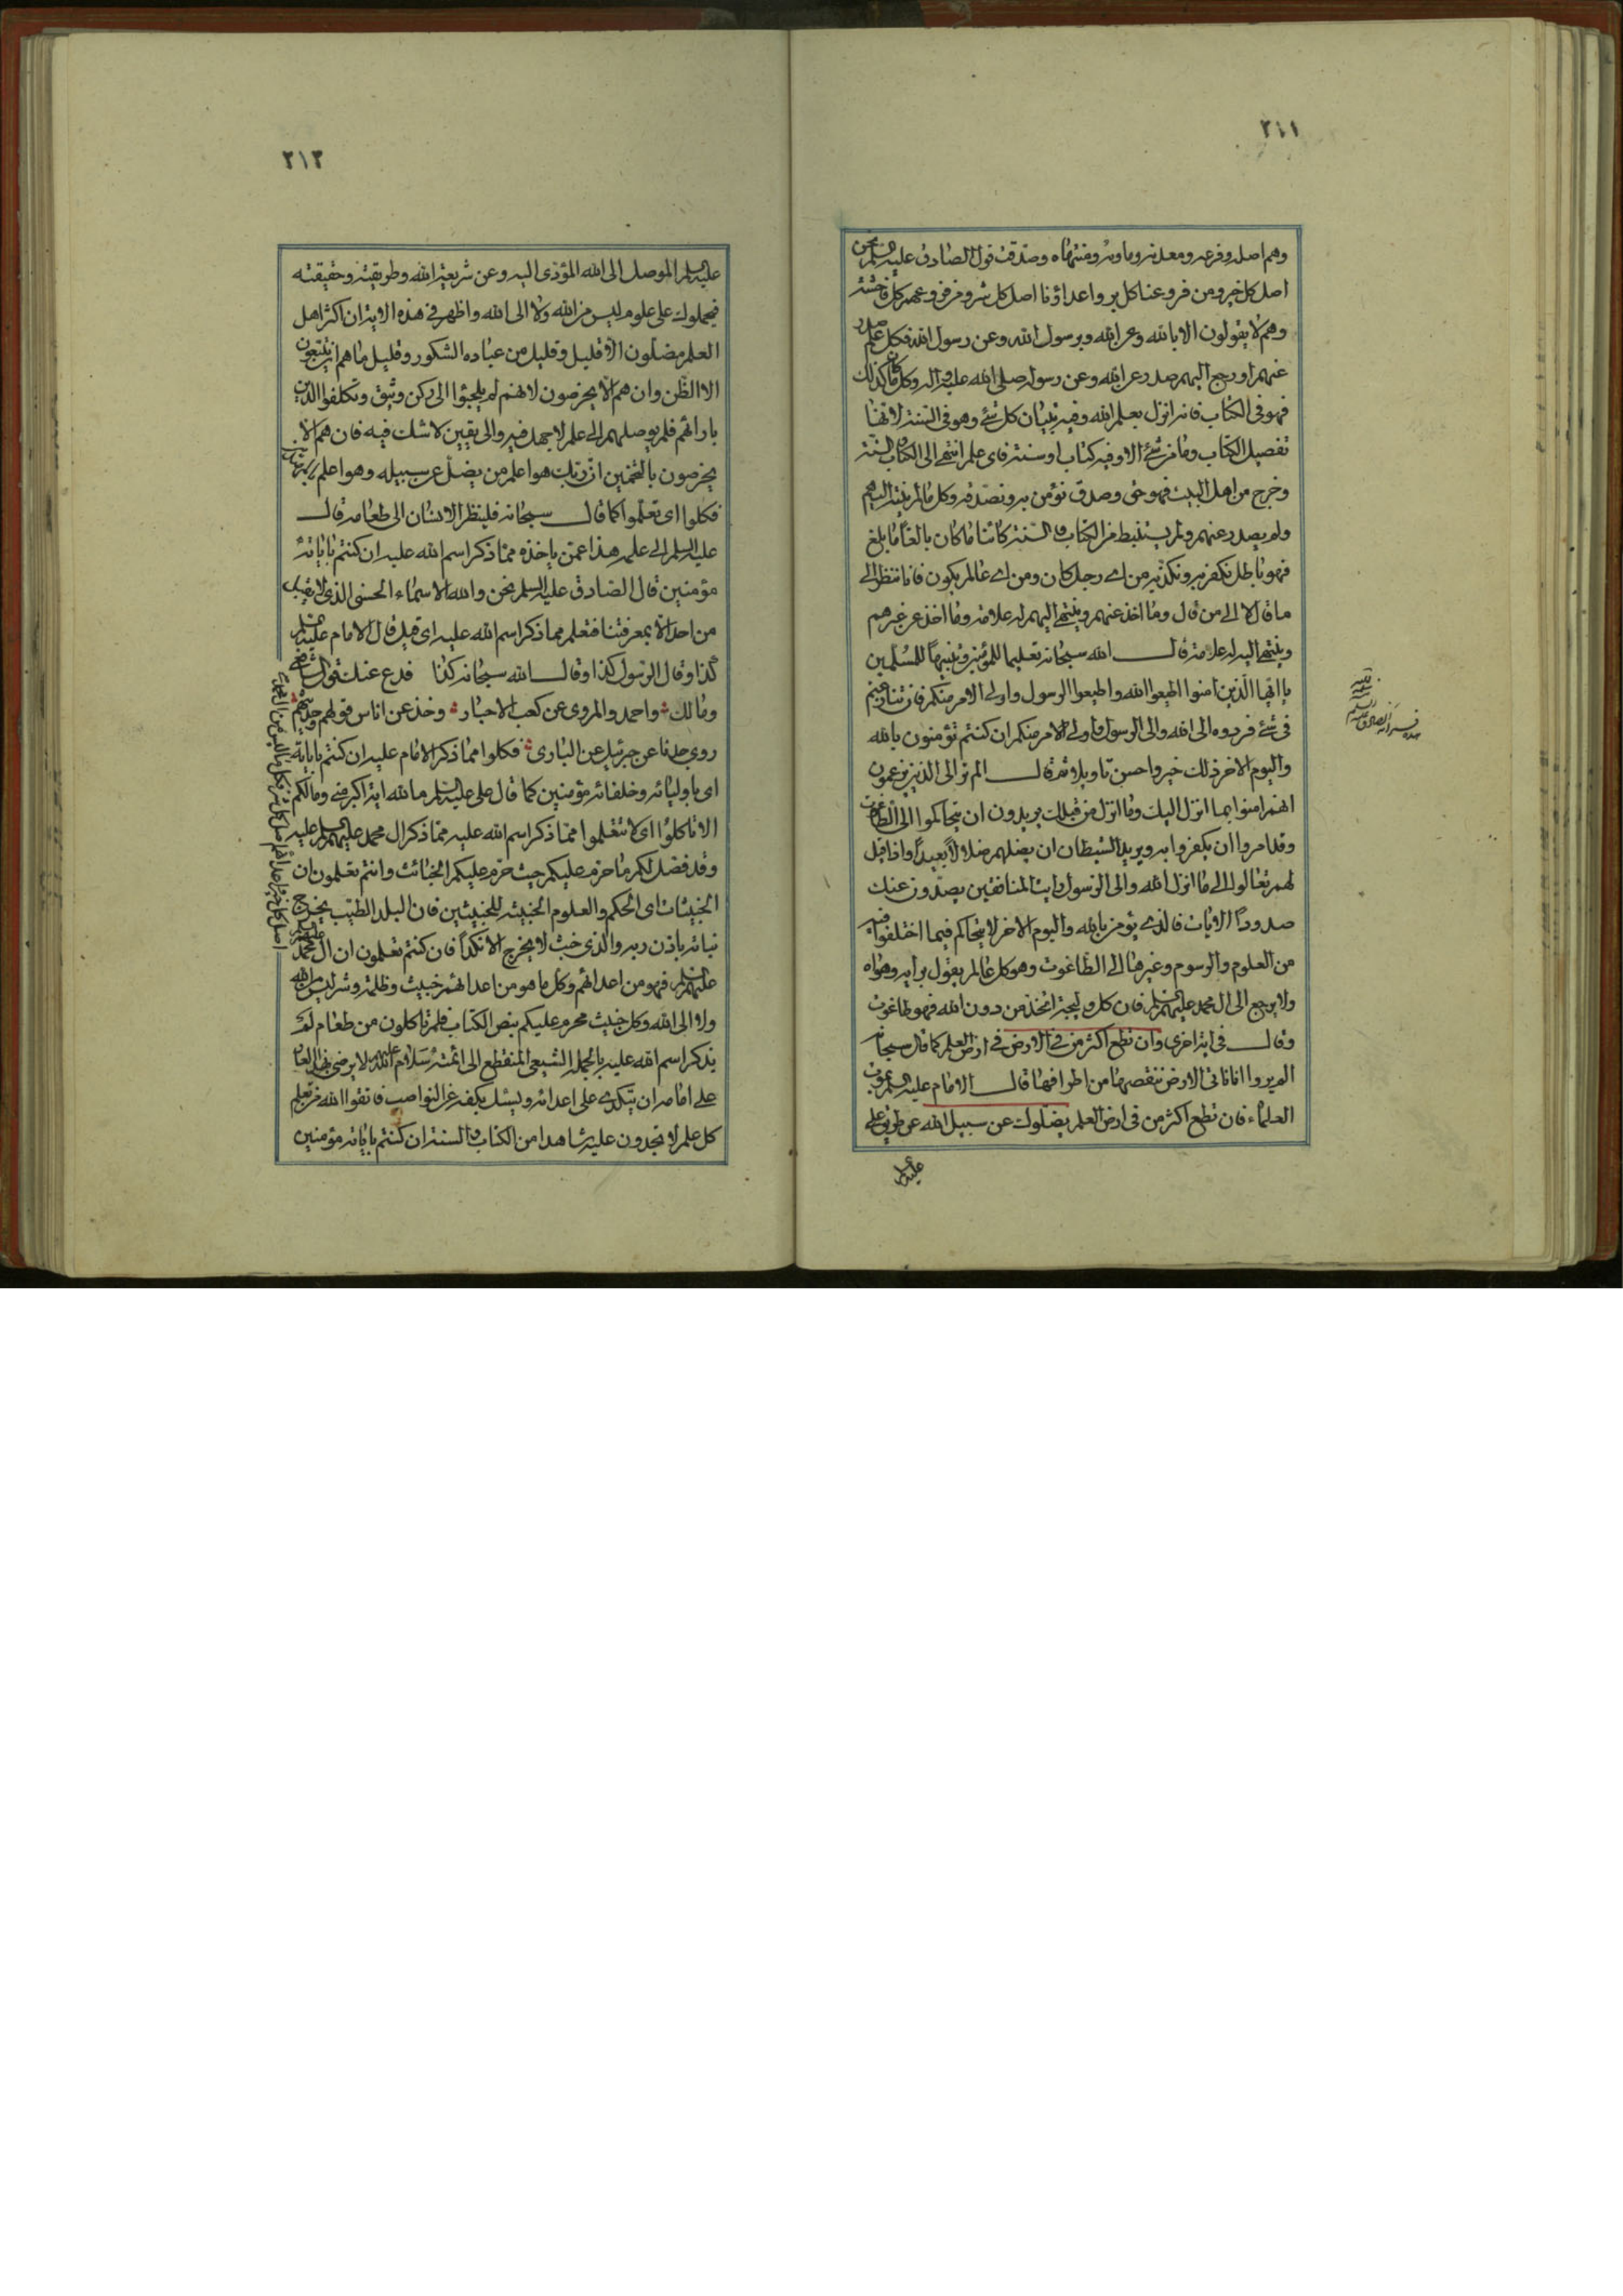 ٢١١
وهم اصله وفرعه ومعدنه وماويه ومنتهاه وصدقت قول الصادق عليه السلم نحن
اصل كل خير ومن فروعنا كل بر واعداؤنا اصل كل شر ومن فروعهم كل فاحشة
وهم لا يقولون الا بالله وعن الله وبرسول الله وعن رسول الله فكل علم صدر
عنهم او رجع اليهم صدر عن الله وعن رسوله صلى الله عليه واله وكل ما كان كذلك
فهو فى الكتاب فانه انزل بعلم الله وفيه تبيان كل شئ وهو فى السنة لانها
تفصيل الكتاب وما من شئ الا وفيه كتاب او سنة فاى علم انتهى الى الكتاب والسنة
وخرج من اهل البيت فهو حق وصدق نؤمن به ونصدقه وكل ما لم ينته اليهم
ولم يصدر عنهم ولم يستنبط من الكتاب والسنة كائنا ما كان بالغا ما بلغ
فهو باطل نكفر به ونكذبه من اى رجل كان ومن اى عالم يكون فانا ننظر الى
ما قال لا الى من قال وما اخذ عنهم وينتهى اليهم له علامة وما اخذ عن غيرهم
وينتهى اليه له علامة قال الله سبحانه تعليما للمؤمنين وتنبيها للمسلمين
يا ايها الذين امنوا اطيعوا الله واطيعوا الرسول واولى الامر منكم فان تنازعتم
فى شئ فردوه الى الله والى الرسول واولى الامر منكم ان كنتم تؤمنون بالله
واليوم الاخر ذلك خير واحسن تاويلا ثم قال الم تر الى الذين يزعمون
انهم امنوا بما انزل اليك وما انزل من قبلك يريدون ان يتحاكموا الى الطاغوت
وقد امروا ان يكفروا به ويريد الشيطان ان يضلهم ضلالا بعيدا واذا قيل
لهم تعالوا الى ما انزل الله والى الرسول رايت المنافقين يصدون عنك
صدودا الايات فالذى يؤمن بالله واليوم الاخر لا يتحاكم فيما اختلفوا فيه
من العلوم والرسوم وغيرها الى الطاغوت وهو كل عالم يقول برايه وهواه
ولا يرجع الى ال محمد عليهم السلم فان كل وليجة اتخذ من دون الله فهو طاغوت
وقال فى اية اخرى وان تطع اكثر من فى الارض فى ارض العلم كما قال سبحانه
الم يروا انا ناتى الارض ننقصها من اطرافها قال الامام عليه السلم بموت
العلماء فان تطع اكثر من فى ارض العلم يضلوك عن سبيل الله عن طريق على
عليه السلم
٢١٢
عليه السلم الموصل الى الله المؤدى اليه وعن شريعة الله وطريقته وحقيقته
فيحملوك على علوم ليس من الله ولا الى الله واظهر فى هذه الاية ان اكثر اهل
العلم مضلون الا قليل وقليل من عباده الشكور وقليل ما هم ان يتبعون
الا الظن وان هم الا يخرصون لانهم لم يلجئوا الى ركن وثيق وتكلفوا الدين
بارائهم فلم يوصلهم الى علم لا جهل فيه والى يقين لا شك فيه فان هم الا
يخرصون بالتخمين ان ربك هو اعلم من يضل عن سبيله وهو اعلم بالمهتدين
فكلوا اى تعلموا كما قال سبحانه فلينظر الانسان الى طعامه قال
عليه السلم الى علمه هذا عمن ياخذه مما ذكر اسم الله عليه ان كنتم باياته
مؤمنين قال الصادق عليه السلم نحن والله الاسماء الحسنى الذى لا يقبل
من احد الا بمعرفتنا فتعلم مما ذكر اسم الله عليه اى قيل قال الامام عليه السلم
كذا وقال الرسول كذا وقال الله سبحانه كذا فدع عنك قول الشافعى
ومالك واحمد والمروى عن كعب الاحبار وخذ عن اناس قولهم وحديثهم
روى جدنا عن جبرئيل عن البارى فكلوا مما ذكر الامام عليه ان كنتم باياته
اى باوليائه وخلفائه مؤمنين كما قال على عليه السلم ما لله اية اكبر منى وما لكم
الا تاكلوا اى لا تتعلموا مما ذكر اسم الله عليه مما ذكر ال محمد عليهم السلم عليه
وقد فصل لكم ما حرم عليكم حيث حرم عليكم الخبائث وانتم تعلمون ان
الخبيثات اى الحكم والعلوم الخبيثة للخبيثين فان البلد الطيب يخرج
نباته باذن ربه والذى خبث لا يخرج الا نكدا فان كنتم تعلمون ان ال محمد
عليهم السلم فهو من اعدائهم وكل ما هو من اعدائهم خبيث وظلمة وشر ليس من الله
ولا الى الله وكل خبيث محرم عليكم بنص الكتاب فلم تاكلون من طعام لم
يذكر اسم الله عليه بالجملة الشيعى المنقطع الى ائمته سلام الله عليهم لا يرضى بهذا العار
على امامه ان يتكدى على اعدائه ويسئل بكفه عن النواصب فاتقوا الله من تعلم
كل علم لا تجدون عليه شاهدا من الكتاب والسنة ان كنتم باياته مؤمنين
اصل كل خير واعدائهم اصل كل شر فكل ما ليس من ال محمد